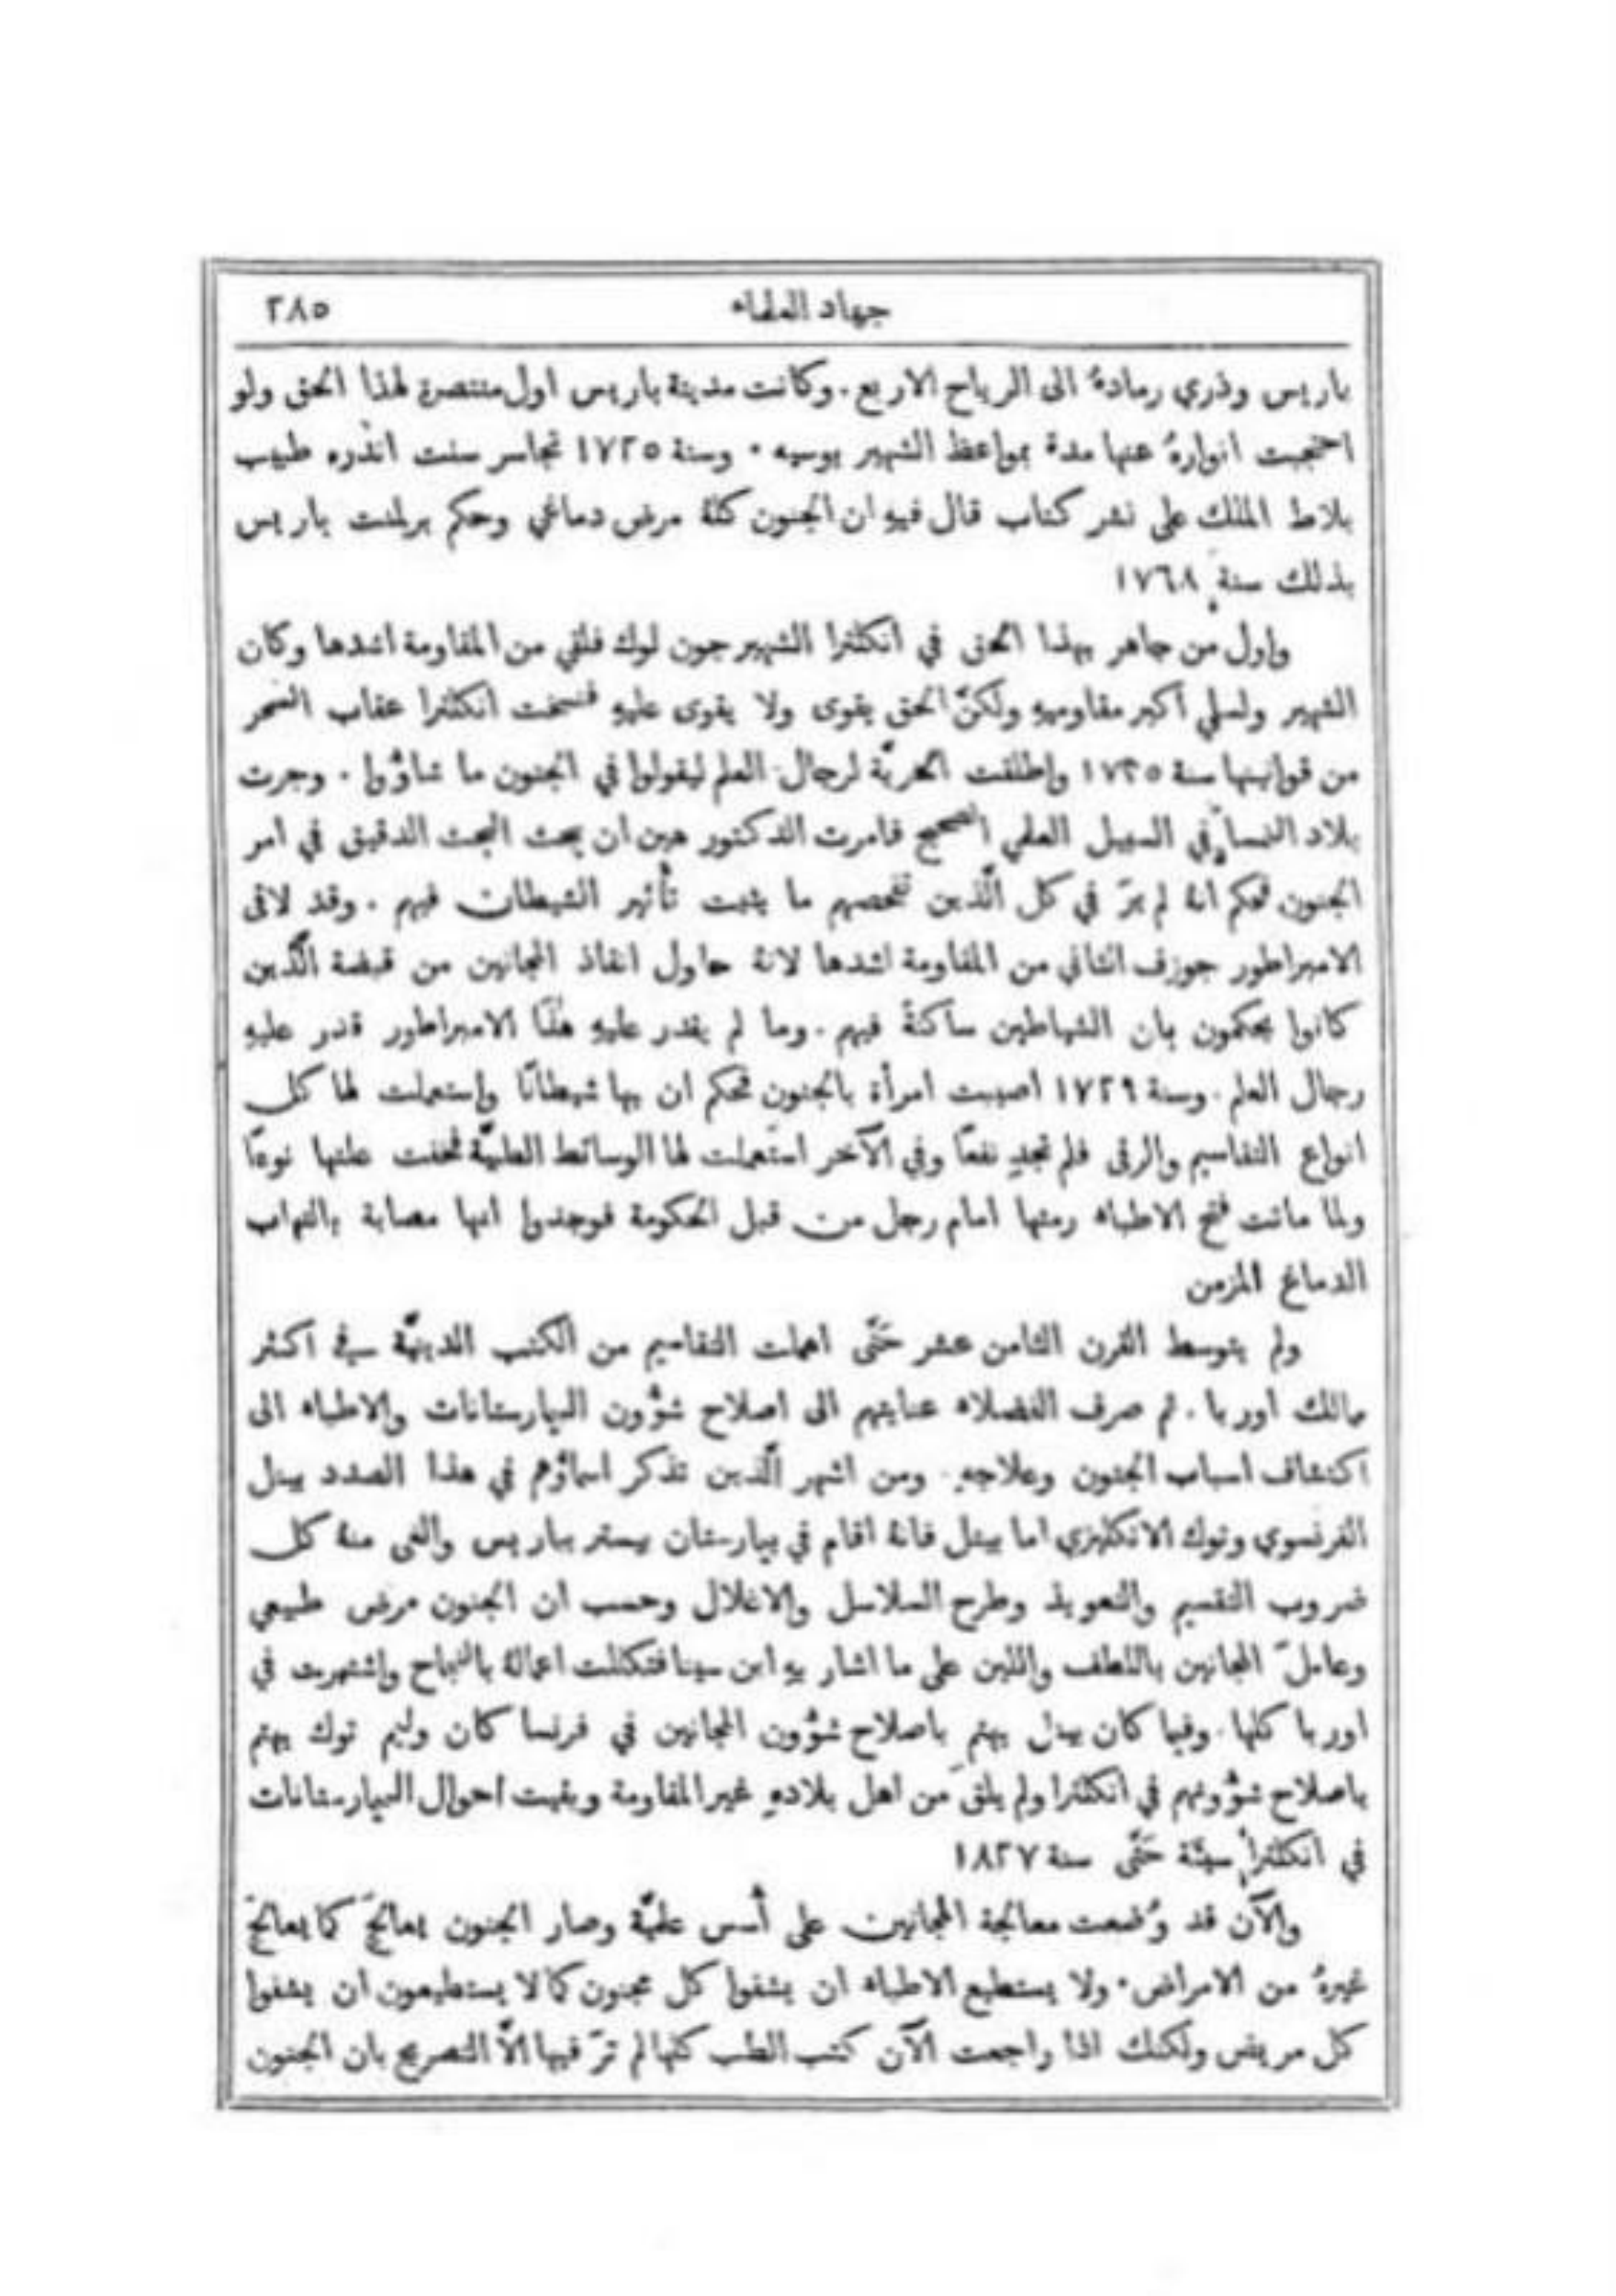 جهاد العلماء ٢٨٥
باريس وذري رمادهُ الى الرياح الاربع. وكانت مدينة باريس اول منتصرة لهذا الحق ولو
احتجبت انوارهُ عنها مدة بمواعظ الشهير بوسيه. وسنة ١٧٢٥ تجاسر سنت اندره طبيب
بلاط الملك على نشر كتاب قال فيهِ ان الجنون كلهُ مرض دماغي وحكم برلمنت باريس
بذلك سنة ١٧٦٨
واول من جاهر بهذا الحق في انكلترا الشهير جون لوك فلقي من المقاومة اشدها وكان
الشهير ولسلي اكبر مقاوميهِ ولكنَّ الحق يقوى ولا يقوى عليهِ فنسخت انكلترا عقاب السحر
من قوانينها سنة ١٧٣٥ واطلقت الحريَّة لرجال العلم ليقولوا في الجنون ما شاؤوا. وجرت
بلاد النمسا في السبيل العلمي الصحيح فامرت الدكتور هين ان يبحث البحث الدقيق في امر
الجنون فحكم انهُ لم يرَ في كل الَّذين تفحصهم ما يثبت تأْثير الشيطان فيهم. وقد لاقى
الامبراطور جوزف الثاني من المقاومة اشدها لانهُ حاول انقاذ المجانين من قبضة الَّذين
كانوا يحكمون بان الشياطين ساكنةٌ فيهم. وما لم يقدر عليهِ هٰذا الامبراطور قدر عليهِ
رجال العلم. وسنة ١٧٢٩ اصيبت امرأة بالجنون فحكم ان بها شيطانًا واستعملت لها كل
انواع التقاسيم والرقى فلم تجدِ نفعًا وفي الآخر استُعملت لها الوسائط الطبيَّة فخفت علتها نوعًا
ولما ماتت فتح الاطباء رمتها امام رجل من قبل الحكومة فوجدوا انها مصابة بالتهاب
الدماغ المزمن
ولم يتوسط القرن الثامن عشر حَتَّى اهملت التقاسيم من الكتب الدينيَّة في اكثر
مالك اوربا. ثم صرف الفضلاء عنايتهم الى اصلاح شؤُون البيارستانات والاطباء الى
اكتشاف اسباب الجنون وعلاجهِ. ومن اشهر الَّذين تذكر اسماؤهم في هذا الصدد بينل
الفرنسوي وتوك الانكليزي اما بينل فانهُ اقام في بيارستان بيستر بباريس والغى منهُ كل
ضروب التقسيم والتعويذ وطرح السلاسل والاغلال وحسب ان الجنون مرض طبيعي
وعامل المجانين باللطف واللين على ما اشار بهِ ابن سينا فتكللت اعمالهُ بالنجاح واشتهرت في
اوربا كلها. وفيما كان بينل يهتم باصلاح شؤُون المجانين في فرنسا كان وليم توك يهتم
باصلاح شؤُونهم في انكلترا ولم يلقَ من اهل بلادهِ غير المقاومة وبقيت احوال البيارستانات
في انكلترا سيئة حَتَّى سنة ١٨٢٧
والآن قد وُضعت معالجة المجانين على أُسس علميَّة وصار الجنون يعالَج كما يعالَج
غيرهُ من الامراض. ولا يستطيع الاطباء ان يشفوا كل مجنون كما لا يستطيعون ان يشفوا
كل مريض ولكنك اذا راجعت الآن كتب الطب كلها لم ترَ فيها الَّا التصريح بان الجنون